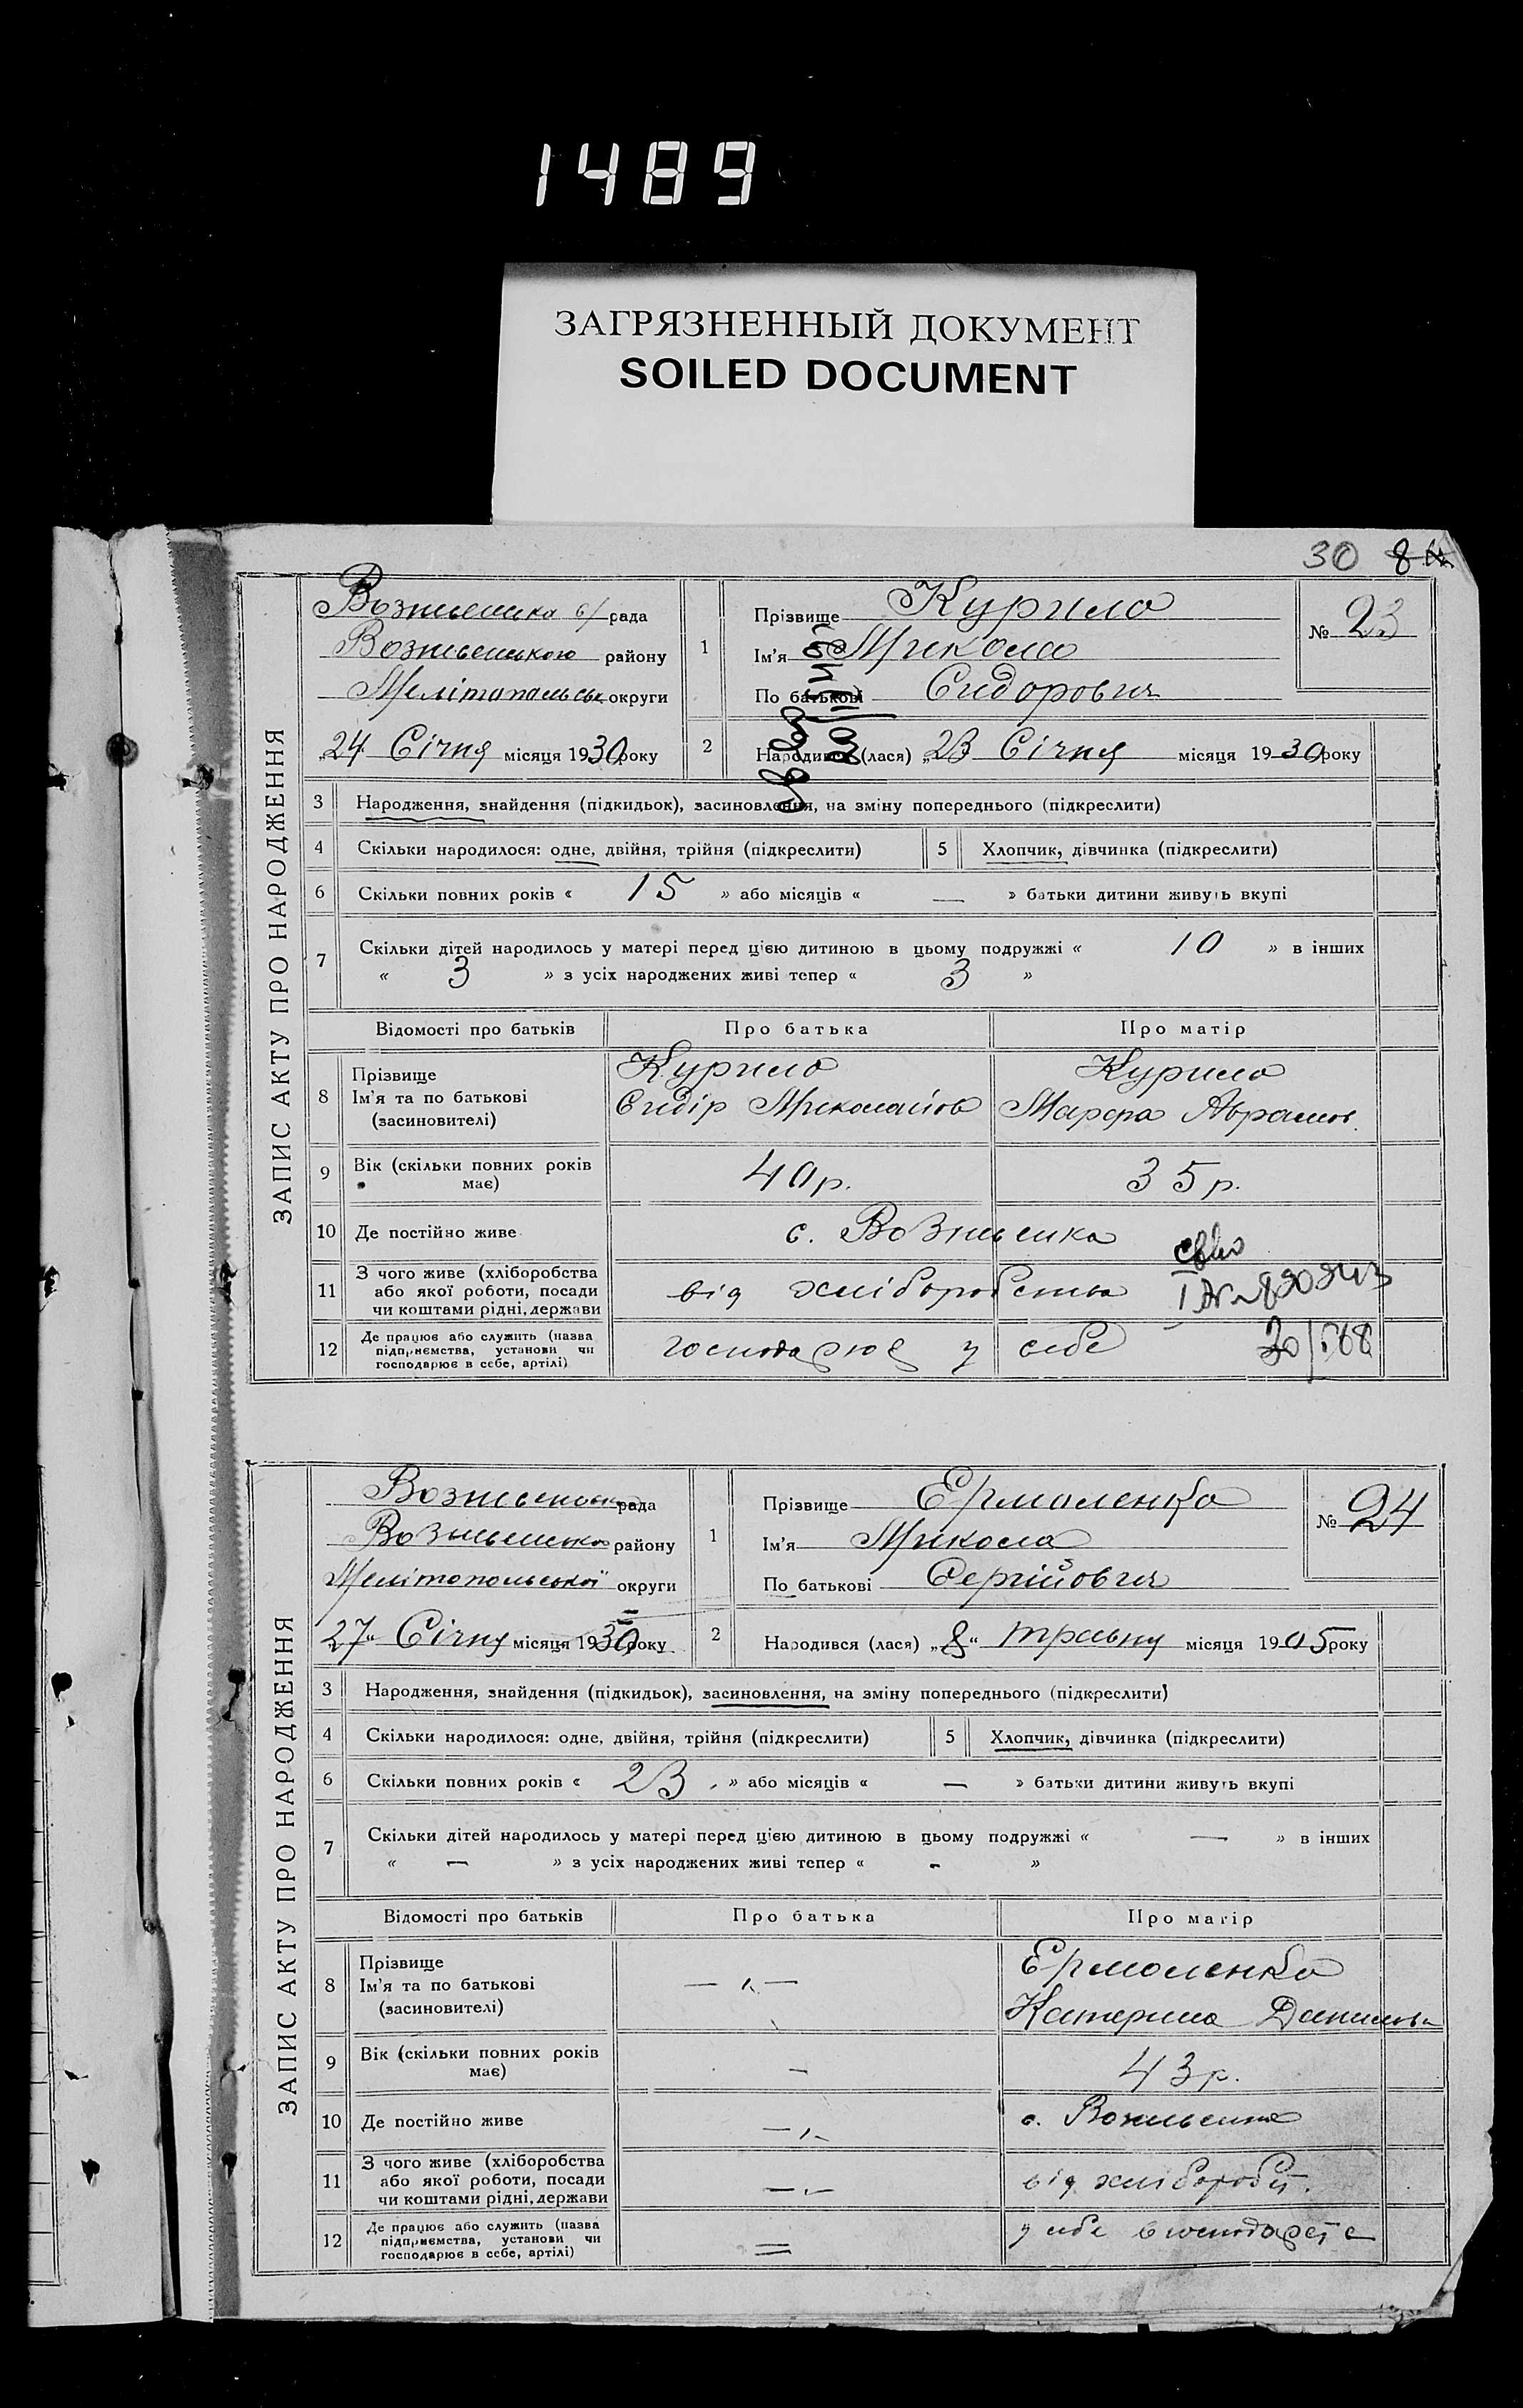 1489
ЗАГРЯЗНЕННЫЙ ДОКУМЕНТ
SOILED DOCUMENT
30
ЗАПИС АКТУ ПРО НАРОДЖЕННЯ
Вознесенка с/рада
Вознесенського району
Мелітопольськ округи
„24 Січня місяця 1930 року
1 Прізвище Курило
Ім'я Микола
По батькові Сидорович
№ 23
2 Народився (лася) „23 Січня місяця 1930 року
3 Народження, знайдення (підкидьок), засиновлення, на зміну попереднього (підкреслити)
4 Скільки народилося: одне, двійня, трійня (підкреслити) 5 Хлопчик, дівчинка (підкреслити)
6 Скільки повних років « 15 » або місяців « — » батьки дитини живуть вкупі
7 Скільки дітей народилось у матері перед цією дитиною в цьому подружжі « 10 » в інших
« 3 » з усіх народжених живі тепер « 3 »
Відомості про батьків Про батька Про матір
8 Прізвище
Ім'я та по батькові
(засновителі)
Курило
Сидір Миколайов
Курило
Марфа Аврамов.
9 Вік (скільки повних років
має)
40 р. 35 р.
10 Де постійно живе с. Вознесенка
11 З чого живе (хліборобства
або якої роботи, посади
чи коштами рідні, держави
від хліборобства
12 Де працює або служить (назва
підприємства, установи чи
господарює в себе, артілі)
господарює у себе
ЗАПИС АКТУ ПРО НАРОДЖЕННЯ
Вознесенська рада
Вознесенсько району
Мелітопольської округи
27" Січня місяця 1930 року
1 Прізвище Ермоленко
Ім'я Микола
По батькові Сергійович
№ 24
2 Народився (лася) „8" травня місяця 1905 року
3 Народження, знайдення (підкидьок), засиновлення, на зміну попереднього (підкреслити)
4 Скільки народилося: одне, двійня, трійня (підкреслити) 5 Хлопчик, дівчинка (підкреслити)
6 Скільки повних років « 23 » або місяців « — » батьки дитини живуть вкупі
7 Скільки дітей народилось у матері перед цією дитиною в цьому подружжі « — » в інших
« — » з усіх народжених живі тепер « - »
Відомості про батьків Про батька Про матір
8 Прізвище
Ім'я та по батькові
(засновителі)
Ермоленко
Катерина Данилов.
9 Вік (скільки повних років
має)
— 43 р.
10 Де постійно живе с. Вознесенка
11 З чого живе (хліборобства
або якої роботи, посади
чи коштами рідні, держави
від хлібороб.
12 Де працює або служить (назва
підприємства, установи чи
господарює в себе, артілі)
у себе в господарстве